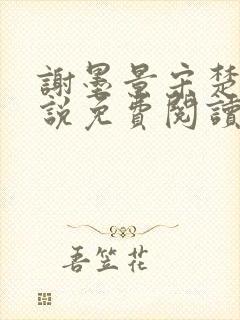 謝墨景宋楚
說免費閱讀
吾笠花